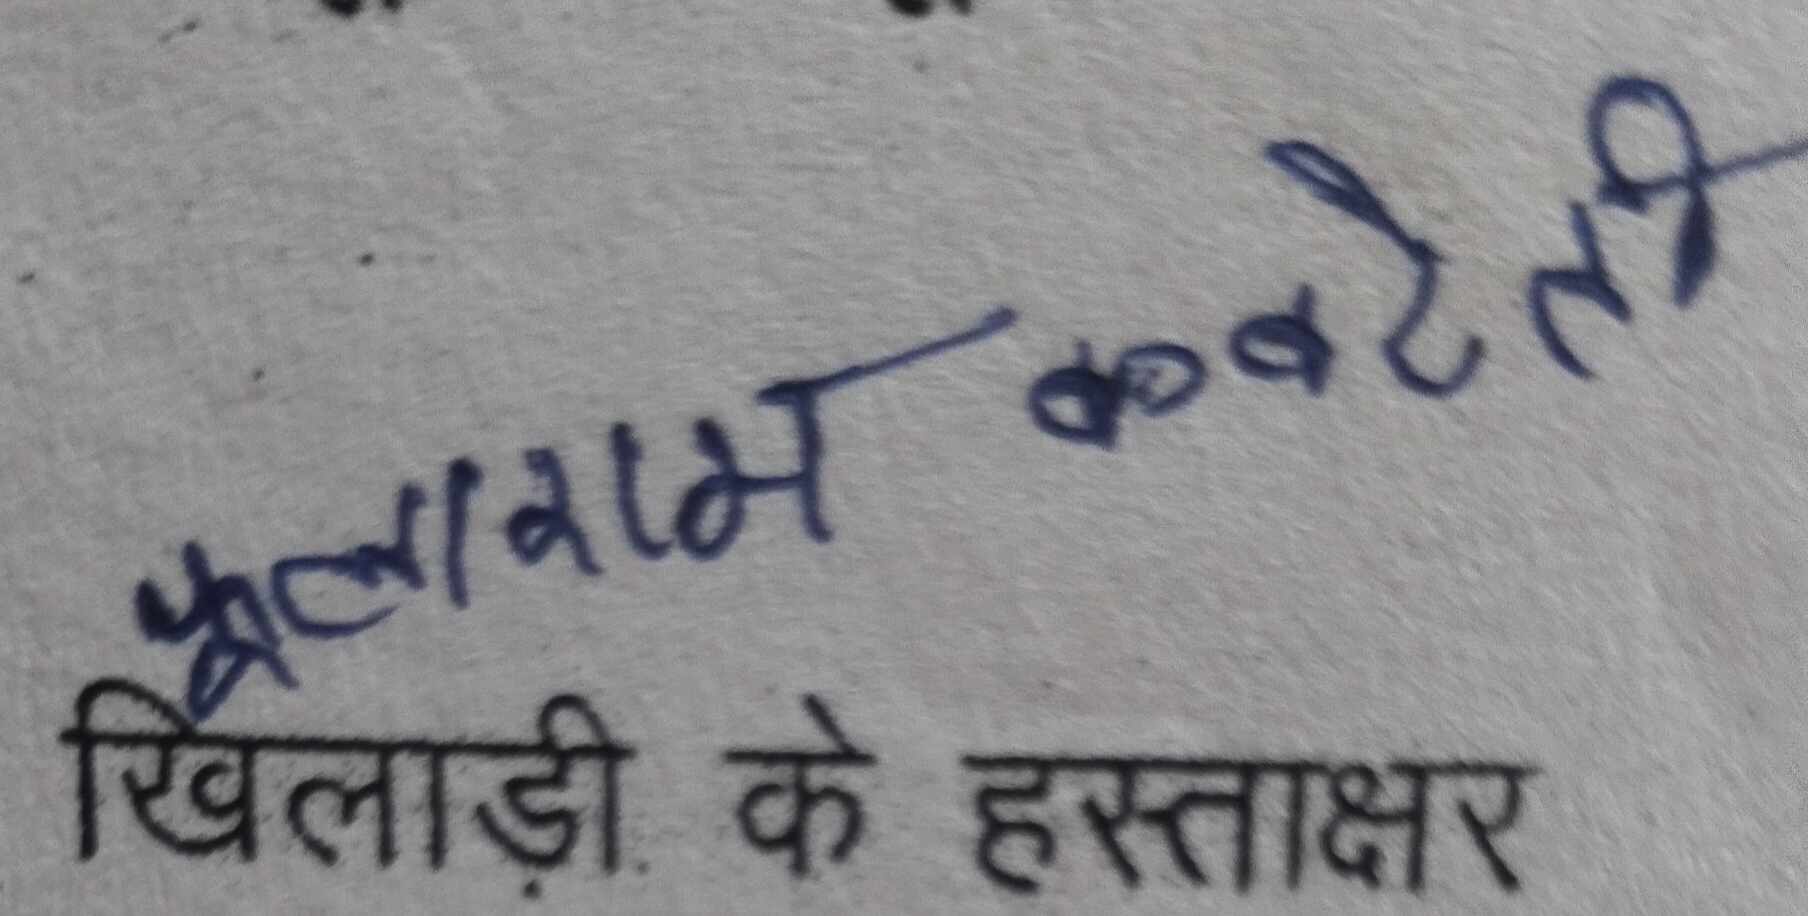 फूलाराम कवरेती
खिलाड़ी के हस्ताक्षर